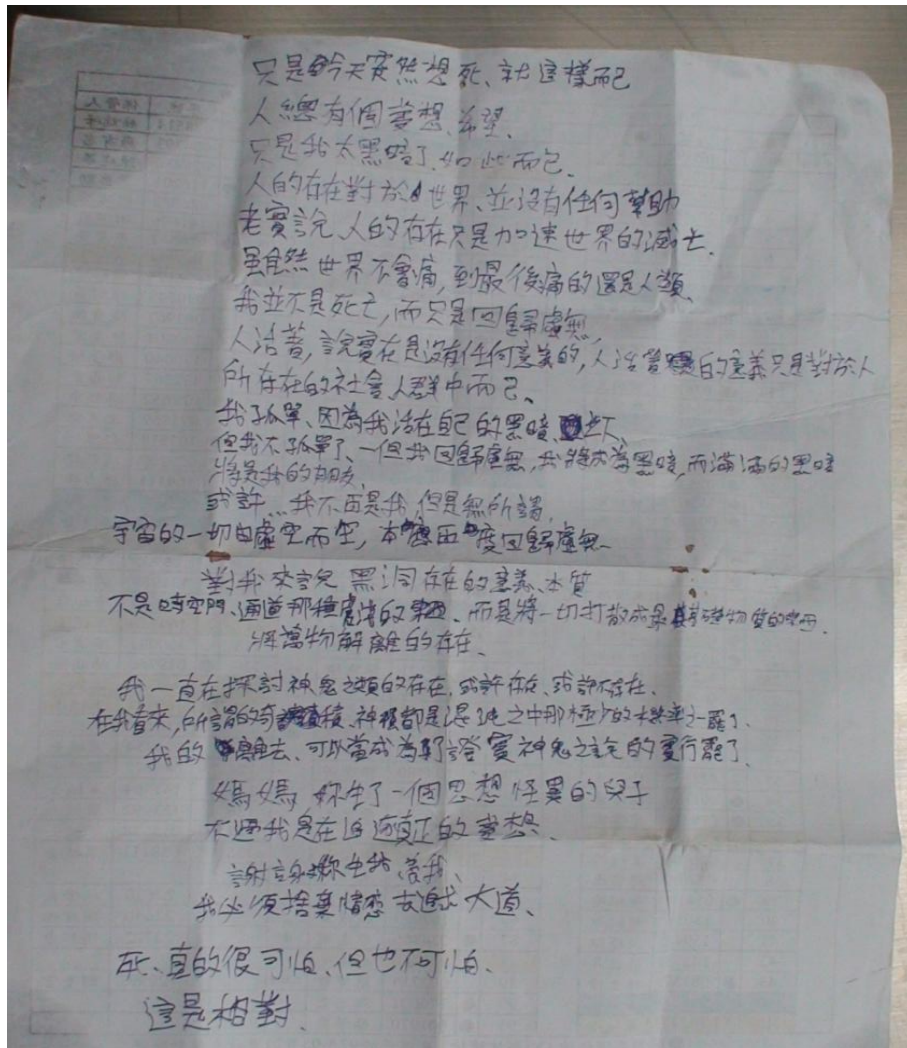 只是今天突然想死、就這樣而已
人總有個夢想、希望、
只是我太黑暗了、如此而已、
人的存在對於世界、並沒有任何幫助
老實說、人的存在只是加速世界的滅亡、
雖然世界不會痛,到最後痛的還是人類、
我並不是死亡,而只是回歸虛無、
人活著,說實在是沒有任何意義的,人活著的意義只是對於人
所存在的社會、人群中而已、
我孤單、因為我活在自己的黑暗之下、
但我不孤單了、一但我回歸虛無,我將成為黑暗,而滿滿的黑暗
將是我的朋友、
或許...我不再是我,但是無所謂,
宇宙的一切自虛空而生,本應再度回歸虛無、
對我來說 黑洞存在的意義、本質
不是時空門、通道那種的、而是將一切打散成最基礎物質的、
將萬物解離的存在、
我一直在探討神鬼之類的存在,或許存在、或許不存在、
在我看來,所謂的奇蹟、神都是混沌之中那極少的機率之一罷了、
我的離去、可以當成為了證實神鬼之說的實行罷了、
媽媽,妳生了一個思想怪異的兒子
不過我是在追逐真正的夢想、
謝謝妳生我、養我、
我必須捨棄情感去追求大道、
死、真的很可怕、但也不可怕、
這是相對